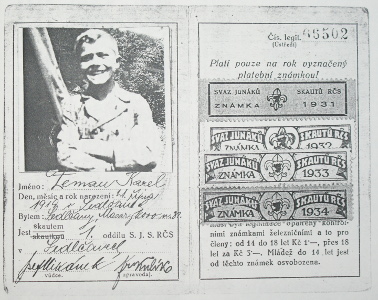 Jméno: Zeman Karel
Den, měsíc a rok narození:
Bytem: Sedlčany,
skautem
Jest skautkou 1. oddílu S. J. S. RČS
v Sedlčanech
vůdce. zpravodaj.
Čís. legit. 46502
(Ústředí)
Platí pouze na rok vyznačený
platební známkou!
SVAZ JUNÁKŮ SKAUTŮ RČS
ZNÁMKA 1931
SVAZ JUNÁKŮ SKAUTŮ RČS
ZNÁMKA 1932
SVAZ JUNÁKŮ SKAUTŮ RČS
ZNÁMKA 1933
SVAZ JUNÁKŮ SKAUTŮ RČS
ZNÁMKA 1934
musí býti legitimace opatřeny kontrol-
ními známkami železničními a to pro
členy: od 14 do 18 let Kč 1·—, přes 18
let za Kč 3·—. Mládež do 14 let jest
od těchto známek osvobozena.